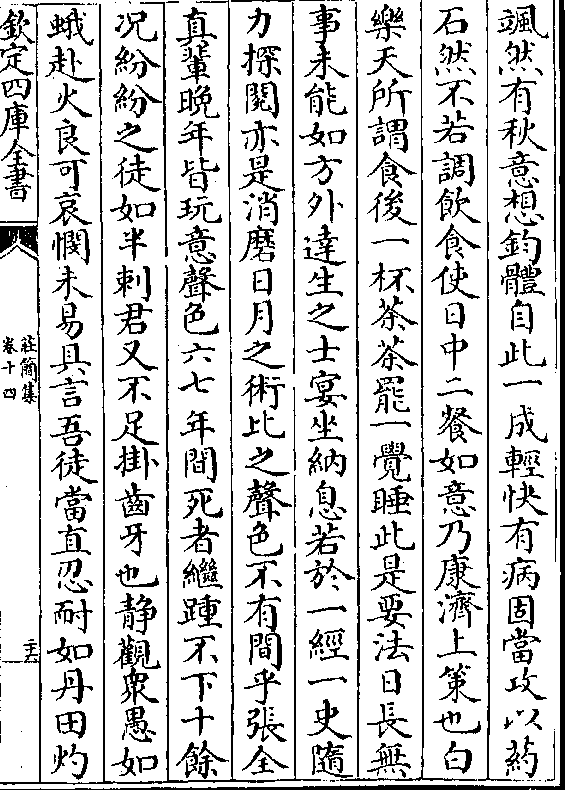 颯然有秋意想鈞體自此一成輕快有病固當攻以藥
石然不若調飲食使日中二餐如意乃康濟上策也白
樂天所謂食後一杯茶茶罷一覺睡此是要法日長無
事未能如方外達生之士宴坐納息若於一經一史隨
力探閱亦是消磨日月之術比之聲色不有間乎張全
真輩晚年皆玩意聲色六七年間死者繼踵不下十餘
况紛紛之徒如半刺君又不足掛齒牙也静觀衆愚如
蛾赴火良可哀憫未易具言吾徒當直忍耐如丹田灼
欽定四庫全書
莊簡集
卷十四